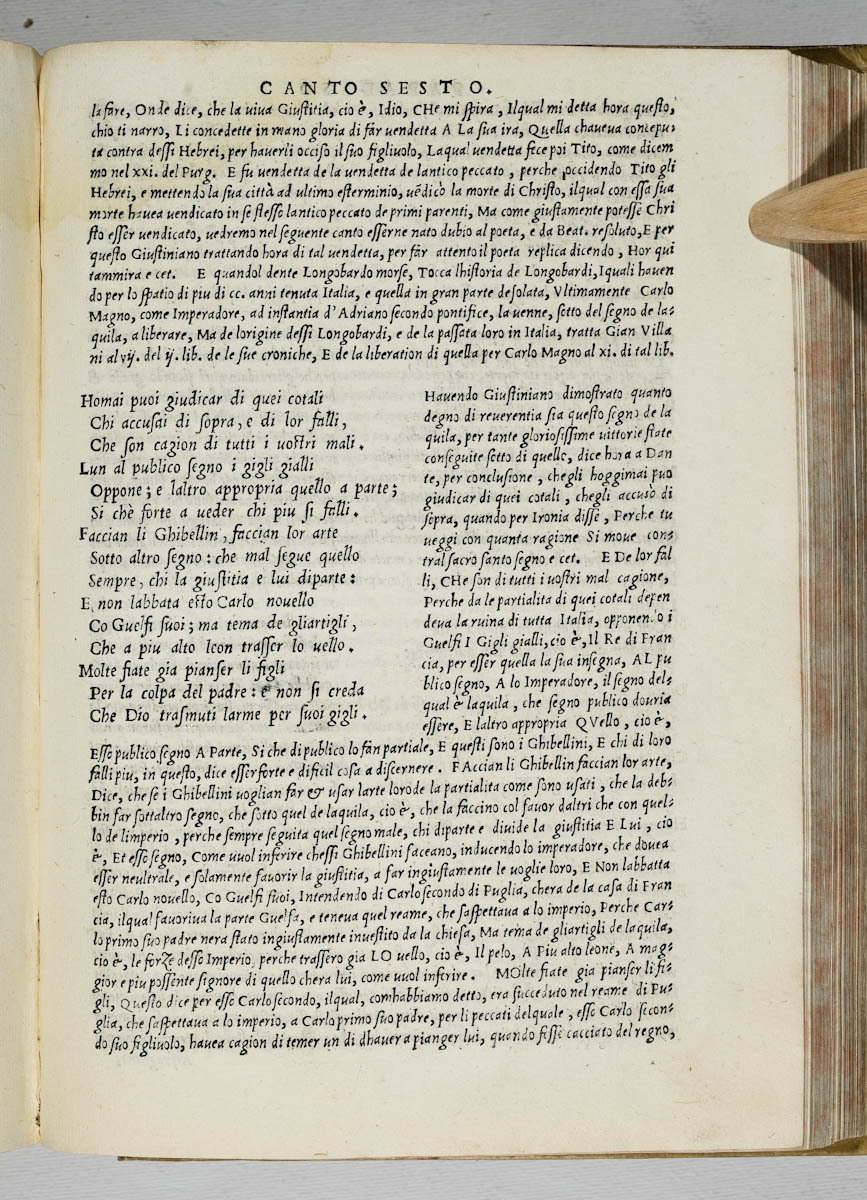 CANTO SESTO.
la fare, Onde dice, che la viva Giustitia, cio è, Idio, CHe mi spira, Ilqual mi detta hora questo,
chio ti narro, Li concedette in mano gloria di far uendetta A La sua ira, Quella chaueua conceputa
ta contra dessi Hebrei, per hauerli occiso il suo figliuolo, Laqual uendetta fece poi Tito, come dicem
mo nel xxi. del Purg. E fu uendetta de la uendetta de lantico peccato, perche occidendo Tito gli
Hebrei, e mettendo la sua città ad ultimo esterminio, uẽdicò la morte di Christo, ilqual con essa sua
morte hauea uendicato in se stesso lantico peccato de primi parenti, Ma come giustamente potesse Chri
sto esser uendicato, uedremo nel seguente canto esserne nato dubio al poeta, e da Beat. resoluto, E per
questo Giustiniano trattando hora di tal uendetta, per far attento il poeta replica dicendo, Hor qui
tammira e cet. E quandol dente Longobardo morse, Tocca lhistoria de Longobardi, Iquali hauen
do per lo spatio di piu di cc. anni tenuta Italia, e quella in gran parte desolata, Vltimamente Carlo
Magno, come Imperadore, ad instantia d'Adriano secondo pontifice, la uenne, sotto del segno de la-
quila, a liberare, Ma de lorigine dessi Longobardi, e de la passata loro in Italia, tratta Gian Villa
ni al vij. del ij. lib. de le sue croniche, E de la liberation di quella per Carlo Magno al xi. di tal lib.
Homai puoi giudicar di quei cotali
Chi accusai di sopra, e di lor falli,
Che son cagion di tutti i uostri mali.
Lun al publico segno i gigli gialli
Oppone; e laltro appropria quello a parte;
Si chè forte a ueder chi piu si falli.
Faccian li Ghibellin, faccian lor arte
Sotto altro segno: che mal segue quello
Sempre, chi la giustitia e lui diparte:
E non labbata esto Carlo nouello
Co Guelfi suoi; ma tema de gliartigli,
Che a piu alto leon trasser lo uello.
Molte fiate gia pianser li figli
Per la colpa del padre: e non si creda
Che Dio trasmuti larme per suoi gigli.
Hauendo Giustiniano dimostrato quanto
degno di reuerentia sia questo segno de la
quila, per tante gloriosissime uittorie state
conseguite sotto di quello, dice hora a Dan
te, per conclusione, chegli hoggimai puo
giudicar di quei cotali, chegli accusò di
sopra, quando per Ironia disse, Perche tu
ueggi con quanta ragione Si moue con-
tral sacro santo segno e cet. E De lor fal
li, CHe son di tutti i uostri mal cagione,
Perche da le partialita di quei cotali depen
deua la ruina di tutta Italia, opponendo i
Guelfi I Gigli gialli, cio è, Il Re di Fran
cia, per esser quella la sua insegna, AL Pu
blico segno, A lo Imperadore, il segno del-
qual è laquila, che segno publico douria
essere, E laltro appropria QVello, cio è,
Esso publico segno A Parte, Si che di publico lo fan partiale, E questi sono i Ghibellini, E chi di loro
falli piu, in questo, dice esser forte e dificil cosa a discernere. FAccian li Ghibellin faccian lor arte,
Dice, che se i Ghibellini uoglian far & usar larte loro de la partialita come sono usati, che la deb-
bin far sottaltro segno, che sotto quel de laquila, cio è, che la faccino col fauor daltri che con quel-
lo de limperio, perche sempre seguita quel segno male, chi diparte e diuide la giustitia E Lui, cio
è, Et esso segno, Come uuol inferire chessi Ghibellini faceano, inducendo lo imperadore, che douea
esser neutrale, e solamente fauorir la giustitia, a far ingiustamente le uoglie loro, E Non labbatta
esto Carlo nouello, Co Guelfi suoi, Intendendo di Carlo secondo di Puglia, chera de la casa di Fran
cia, ilqual fauoriua la parte Guelfa, e teneua quel reame, che saspettaua a lo imperio, Perche Car-
lo primo suo padre nera stato ingiustamente inuestito da la chiesa, Ma tema de gliartigli de laquila,
cio è, le forze desso Imperio, perche trassero gia LO uello, cio è, Il pelo, A Piu alto leone, A mag-
gior e piu possente signore di quello chera lui, come uuol inferire. MOlte fiate gia pianser li fi-
gli, Questo dice per esso Carlo secondo, ilqual, comhabbiamo detto, era succeduto nel reame di Pu-
glia, che saspettaua a lo imperio, a Carlo primo suo padre, per li peccati delquale, esso Carlo secon-
do suo figliuolo, hauea cagion di temer un di dhauer a pianger lui, quando fosse cacciato del regno,